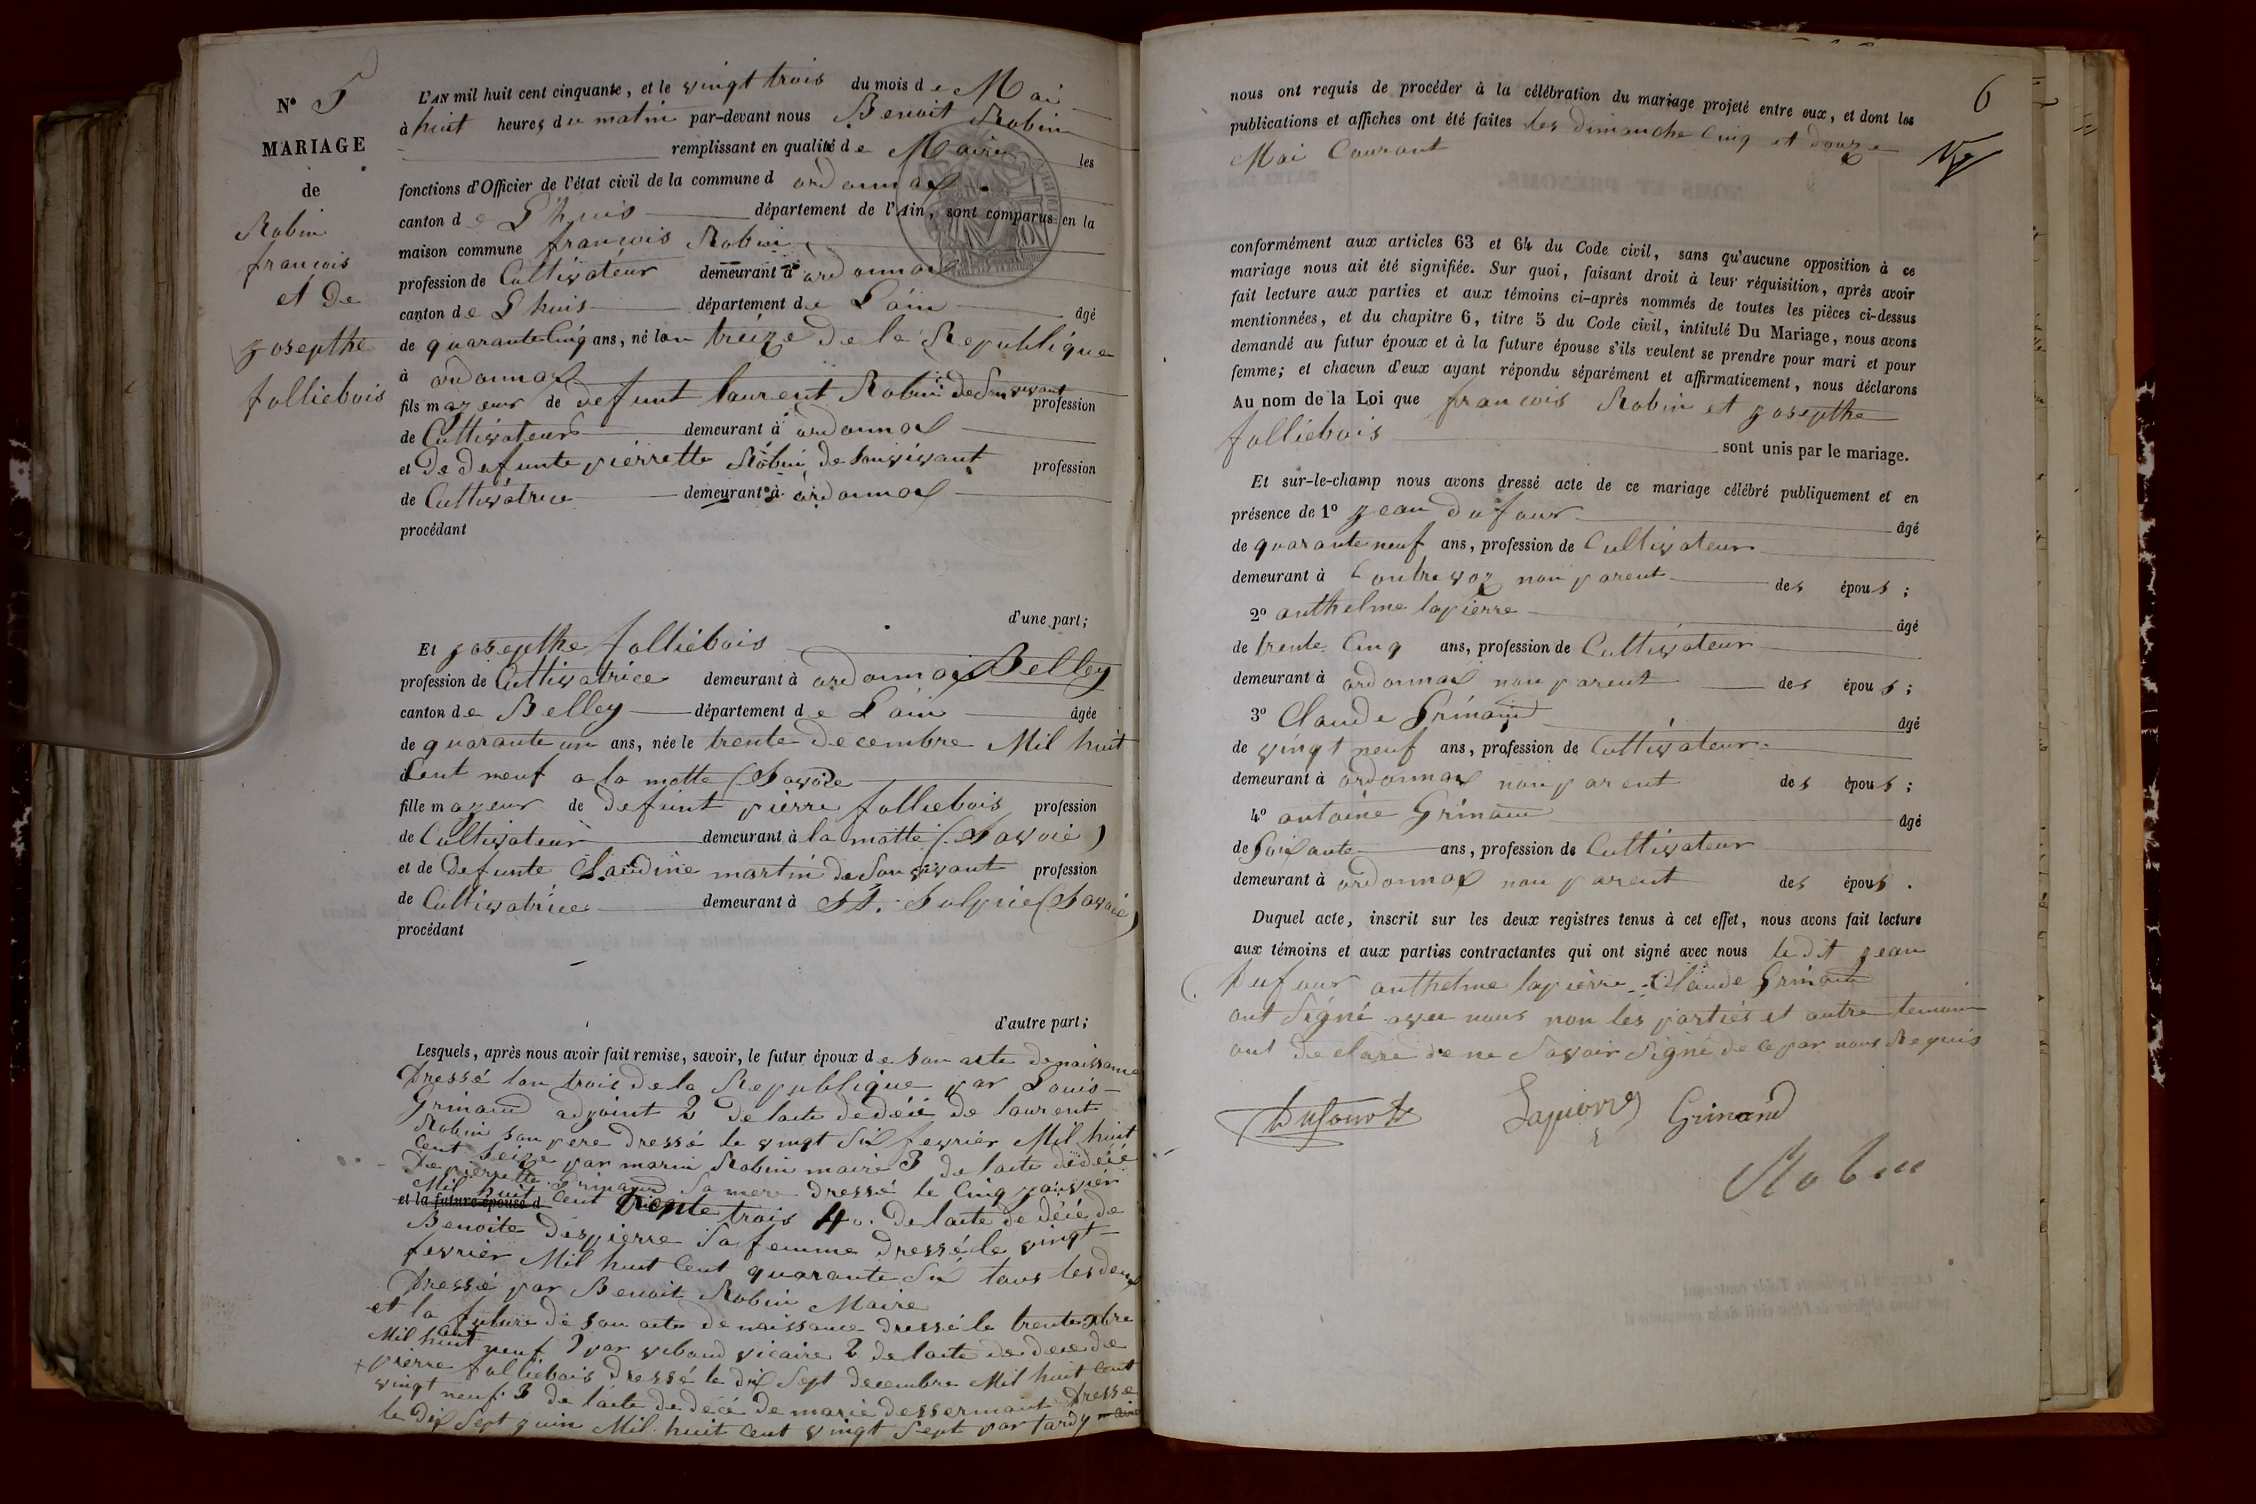 N° 5
MARIAGE
de
Robin
françois
et De
Josepthe
folliebois
L'AN mil huit cent cinquante, et le vingt trois du mois de Mai
à huit heures du matin par-devant nous Benoit Robin
remplissant en qualité de Maire les
fonctions d'Officier de l'état civil de la commune d ordonnax
canton de L'huis département de l'Ain, sont comparus en la
maison commune françois Robin
profession de Cultivateur demeurant à ordonnax
canton de Lhuis département de Lain âgé
de quarante Cinq ans, né lan treize de la Republique
à ordonnax
fils mayeur de defunt laurent Robin de Son vivant profession
de Cultivateur demeurant à ordonnax
et de defunte pierrette Robin de Son vivant profession
de Cultivatrice demeurant à ordonnax
procédant
d'une part;
Et Josepthe folliebois
profession de Cultivatrice demeurant à ordonnax Belley
canton de Belley département de Lain âgée
de quarante un ans, née le trente decembre Mil huit
Cent neuf a la motte (Savoie
fille mayeur de defunt pierre folliebois profession
de Cultivateur demeurant à la motte (Savoie)
et de defunte Claudine martin de Son vivant profession
de Cultivatrice demeurant à St. Sulpice (Savoie)
procédant
d'autre part;
Lesquels, après nous avoir fait remise, savoir, le futur époux de Son acte de naissance
Dressé lan trois de la Republique par Louis
Grinand adjoint 2 de lacte de déié de laurent
Robin Son pere Dressé le vingt Six fevrier Mil huit
Cent Seize par marin Robin maire 3 de lacte de déié
De pierrette Grinand Sa mere Dressé le Cinq janvier
Mil huit Cent trente trois 4o. De lacte de déié de
et la future épouse d
Benoite Despierre Sa femme Dressé le vingt
fevrier Mil huit Cent quarante Six tous les deux
Dressé par Benoit Robin Maire
et la future de Son acte de naissance dressé le trente xbre
Mil huit cent neuf par vicaire 2 de lacte de deie de
pierre folliebois Dressé le dix Sept decembre Mil huit Cent
vingt neuf 3 de lacte de décé de marie dessermant Dressé
le Dix Sept juin Mil huit Cent vingt Sept par tardy maire
6
nous ont requis de procéder à la célébration du mariage projeté entre eux, et dont les
publications et affiches ont été faites les Dimanche Cinq et douze
Mai Courant
conformément aux articles 63 et 64 du Code civil, sans qu'aucune opposition à ce
mariage nous ait été signifiée. Sur quoi, faisant droit à leur réquisition, après avoir
fait lecture aux parties et aux témoins ci-après nommés de toutes les pièces ci-dessus
mentionnées, et du chapitre 6, titre 5 du Code civil, intitulé Du Mariage, nous avons
demandé au futur époux et à la future épouse s'ils veulent se prendre pour mari et pour
femme; et chacun d'eux ayant répondu séparément et affirmaticement, nous déclarons
Au nom de la Loi que françois Robin et Josepthe
folliebois sont unis par le mariage.
Et sur-le-champ nous avons dressé acte de ce mariage célébré publiquement et en
présence de 1° Jean Dufour âgé
de quarante neuf ans, profession de Cultivateur
demeurant à Contrevoz non parent des épous;
2° anthelme lapierre âgé
de trente Cinq ans, profession de Cultivateur
demeurant à ordonnax non parent des épous;
3° Claude Grinand âgé
de vingt neuf ans, profession de Cultivateur
demeurant à ordonnax non parent des épous;
4° antoine Grinand âgé
de Soixante ans, profession de Cultivateur
demeurant à ordonnax non parent des épous.
Duquel acte, inscrit sur les deux registres tenus à cet effet, nous avons fait lecture
aux témoins et aux parties contractantes qui ont signé avec nous ledit Jean
Dufour anthelme lapierre Claude Grinand
ont Signé avec nous non les parties et autre temoin
ont declaré de ne Savoir Signé de ce par nous Requis
Dufour
Lapierre
Grinand
Robin